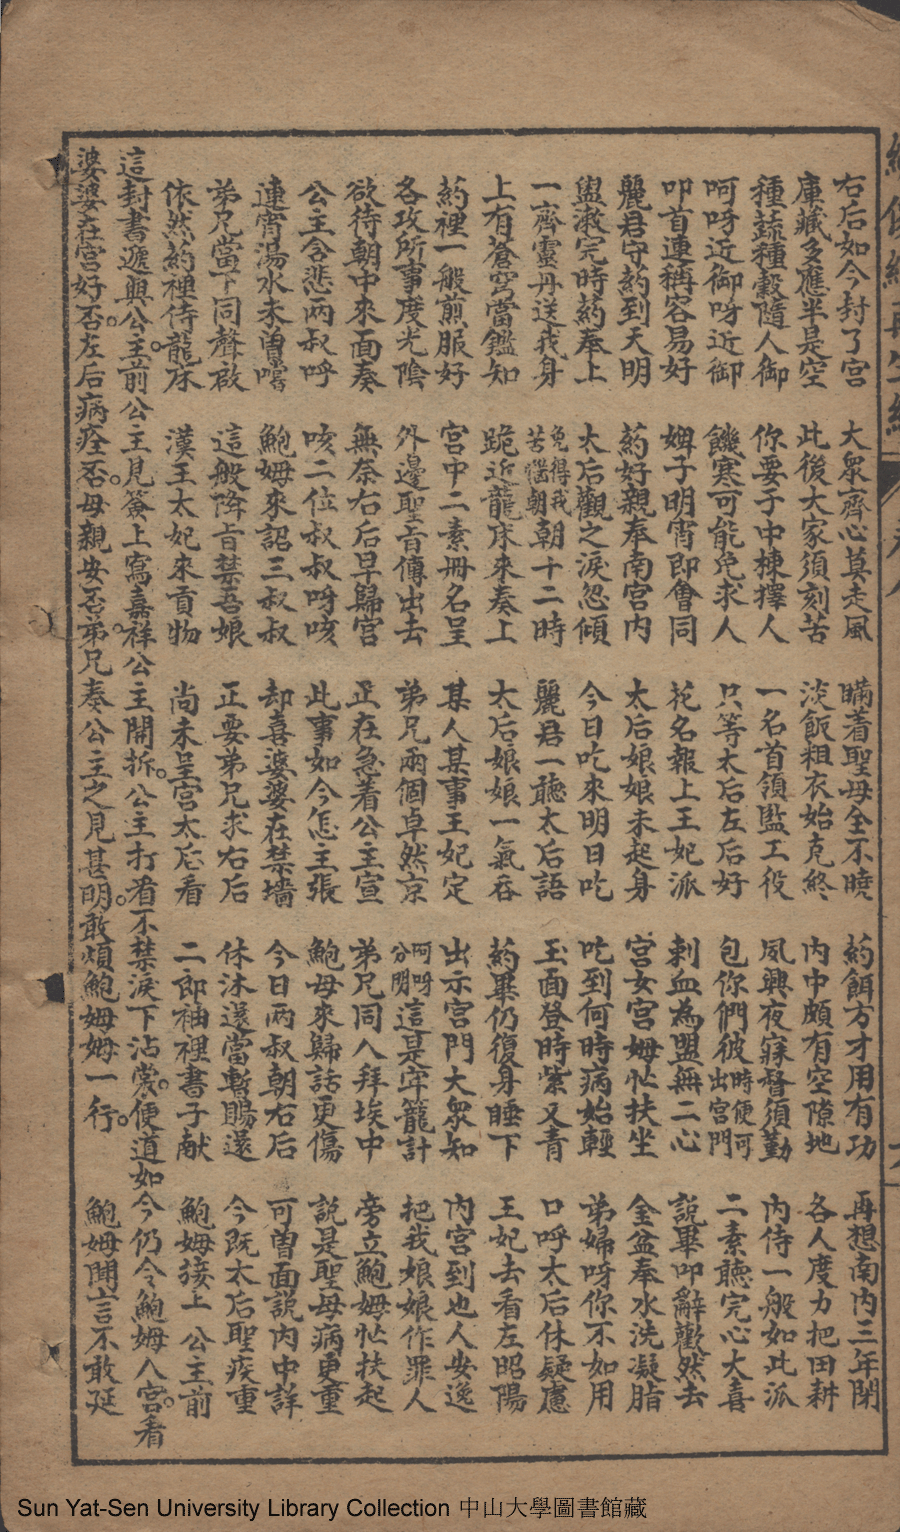 右后如今封了宮 大衆齊心莫走風 瞞着聖母全不曉 葯餌方才用有功 再想南內三年閉
庫藏多應半是空 此後大家須刻苦 淡飯粗衣始克終 內中頗有空隙地 各人度力把田耕
種蔬種穀隨人御 你要子中棟擇人 一名首領監工役 夙興夜寐督須勤 內侍一般如此派
呵呀近御呀近御 饑寒可能免求人 只等太后左后好 包你們彼時便可出宮門 二素聽完心大喜
叩首連稱容易好 婢子明宵即會同 花名報上王妃派 刺血為盟無二心 說畢叩辭歡然去
麗君守葯到天明 葯好親奉南宮內 太后娘娘未起身 宮女宮姆忙扶坐 金盆奉水洗凝脂
盥漱完時葯奉上 太后觀之淚忽傾 今日吃來明日吃 吃到何時病始輕 弟婦呀你不如用
一齊靈丹送我身 免得我苦惱朝朝十二時 麗君一聽太后語 玉面登時紫又青 口呼太后休疑慮
上有蒼穹當鑑知 跪近龍床來奏上 太后娘娘一氣吞 葯畢仍復身睡下 王妃去看左昭陽
葯裡一般煎服好 宮中二素冊名呈 某人某事王妃定 出示宮門大衆知 內宮到也人安逸
各攻所事度光陰 外邊聖旨傳出去 弟兄兩個卓然京 呵呀分明這是牢籠計 把我娘娘作罪人
欲待朝中來面奏 無奈右后早歸宮 正在急着公主宣 弟兄同人拜埃中 旁立鮑姆忙扶起
公主含悲兩叔呼 咳二位叔叔呀咳 此事如今怎主張 鮑母來歸話更傷 說是聖母病更重
連宵湯水未曾嚐 鮑姆來詔三叔叔 却喜婆婆在禁墻 今日兩叔朝右后 可曾面說內中詳
弟兄當下同聲啟 這般降旨禁吾娘 正要弟兄求右后 休沐還當暫賜還 今既太后聖疾重
依然葯裡侍龍床 漢王太妃來貢物 尚未呈宮太后看 二郎袖裡書子献 鮑姆接上公主前
這封書遞與公主。前公主見簽上寫嘉祥公主開拆。公主打看不禁淚下沾裳。便道如今仍令鮑姆入宮。看
婆婆在宮好否。左后病痊否。母親安否。弟兄奏公主之見甚明。敢煩鮑姆姆一行。 鮑姆聞言不敢延
Sun Yat-Sen University Library Collection 中山大學圖書館藏